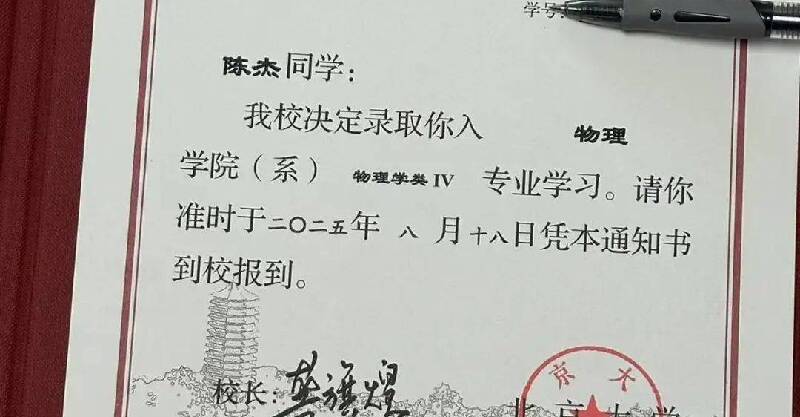 学号:
陈杰同学：
我校决定录取你入 物理
学院（系） 物理学类 IV 专业学习。请你
准时于二〇二五年 八 月十八日凭本通知书
到校报到。
校长：龚旗煌
京 大
北京大学